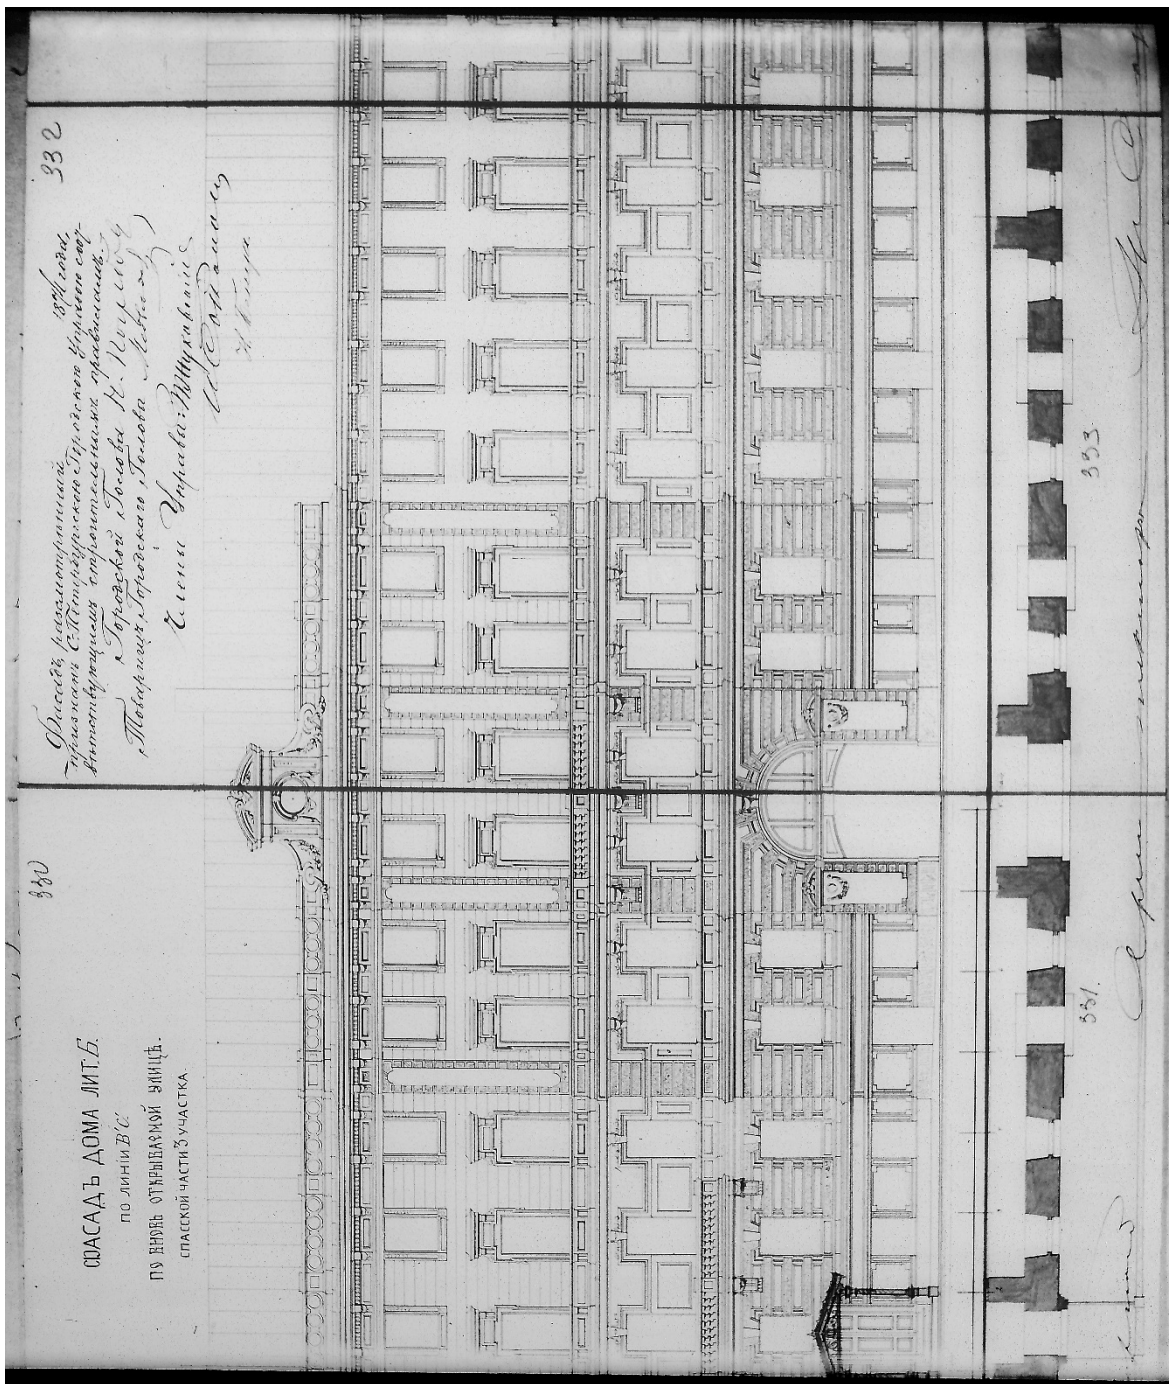 ФАСАДЪ ДОМА ЛИТ.Б.
по линіи В'С'.
ПО ВНОВЬ ОТКРЫВАЕМОЙ УЛИЦѢ.
СПАССКОЙ ЧАСТИ 3 УЧАСТКА.
330
332
Фасадъ, разсмотрѣнный 1874 года,
признанъ С.Петербургскою Городскою Управою соот-
вѣтствующимъ строительнымъ правиламъ.
Городской Голова Н. Погребов
Товарищъ Городскаго Головы
Члены Управы:
331.
333
Архитекторъ